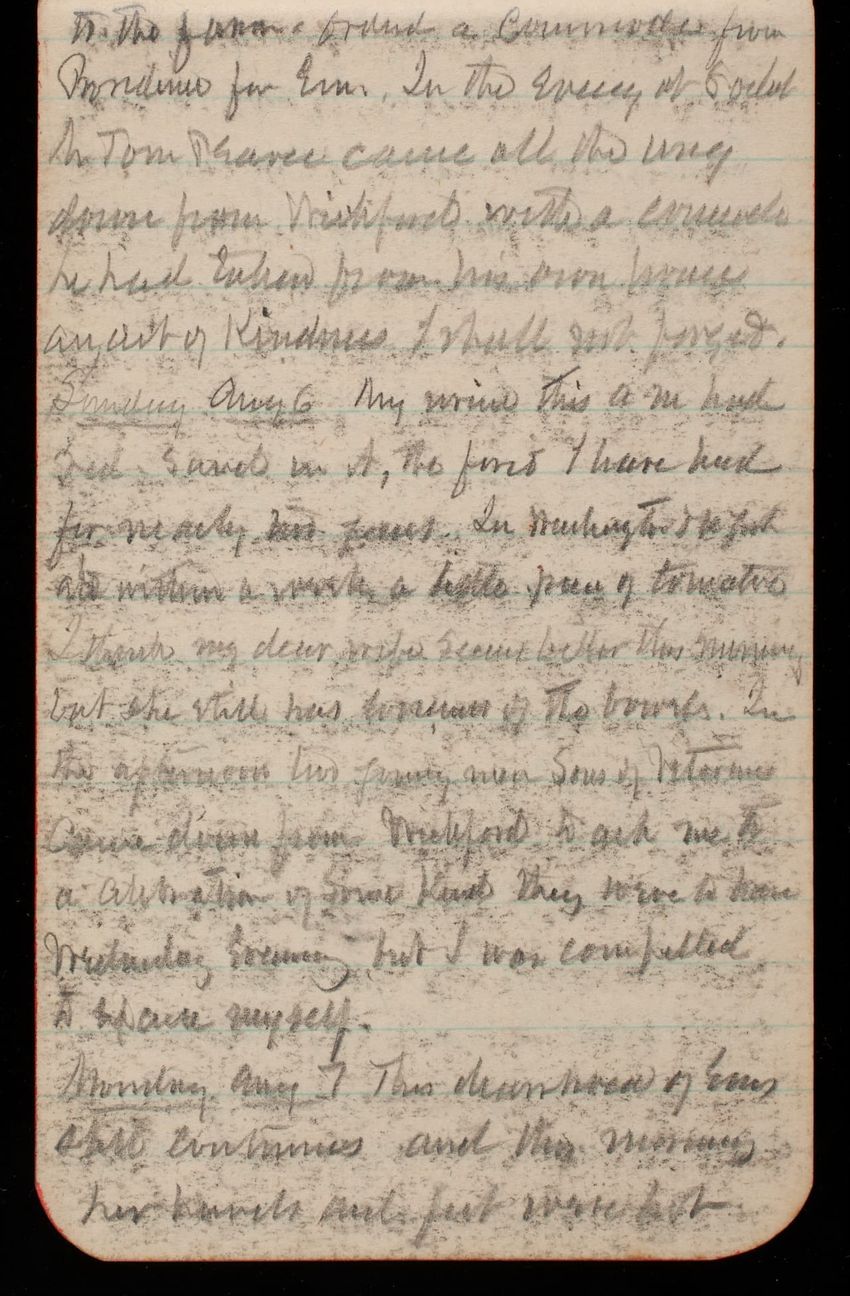 to the farm & ordered a Commode from
Providence for Em. In the Evening at 8 oclock
Mr Tom Pearce came all the way
down from Wickford with a commode
he had taken from his own house
an act of Kindness I shall not forget.
Sunday Aug 6 My urine this a m had
red sand in it, the first I have had
for nearly two years. In Washington
ate within a week a little piece of tomatoe
I think my dear wife seems better this morning
but she still has looseness of the bowels. In
the afternoon two young men Sons of Veterans
Came down from Wickford to ask me to
a Celebration of Some Kind they were to have
Wednesday Evening but I was compelled
to excuse myself.
Monday Aug 7 This diarrhoea of Ems
still continues and this morning
her hands and feet were hot